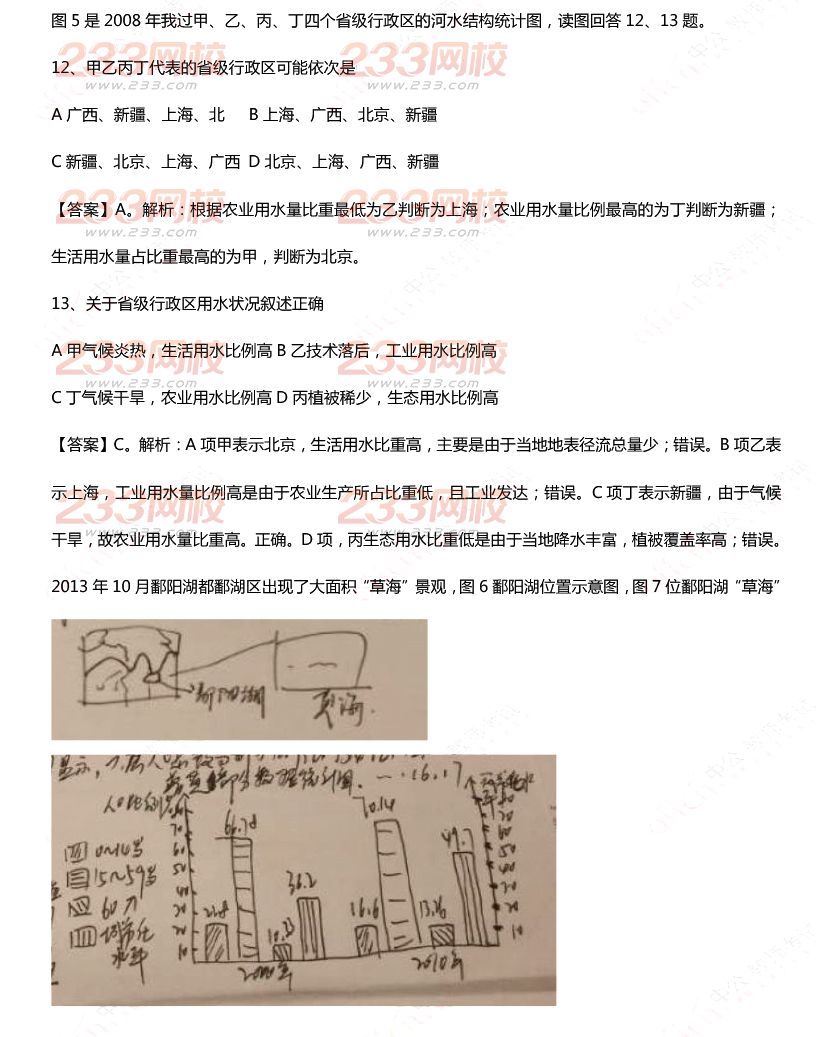 图5是2008年我过甲、乙、丙、丁四个省级行政区的河水结构统计图，读图回答12、13题。
12、甲乙丙丁代表的省级行政区可能依次是
A广西、新疆、上海、北 B上海、广西、北京、新疆
C新疆、北京、上海、广西 D北京、上海、广西、新疆
【答案】A。解析：根据农业用水量比重最低为乙判断为上海；农业用水量比例最高的为丁判断为新疆；
生活用水量占比重最高的为甲，判断为北京。
13、关于省级行政区用水状况叙述正确
A甲气候炎热，生活用水比例高B乙技术落后，工业用水比例高
C丁气候干旱，农业用水比例高D丙植被稀少，生态用水比例高
【答案】C。解析：A项甲表示北京，生活用水比重高，主要是由于当地地表径流总量少；错误。B项乙表
示上海，工业用水量比例高是由于农业生产所占比重低，且工业发达；错误。C项丁表示新疆，由于气候
干旱，故农业用水量比重高。正确。D项，丙生态用水比重低是由于当地降水丰富，植被覆盖率高；错误。
2013年10月鄱阳湖都鄱湖区出现了大面积“草海”景观，图6鄱阳湖位置示意图，图7位鄱阳湖“草海”
鄱阳湖
草海
16.17
人口比例
0~14岁
15~59岁
60岁
城市化
水平
66.78
10.33
36.2
2000年
70.14
16.6
13.26
49.7
2010年
233网校
www.233.com
233网校
www.233.com
233网校
www.233.com
233网校
www.233.com
233网校
www.233.com
233网校
www.233.com
233网校
www.233.com
233网校
www.233.com